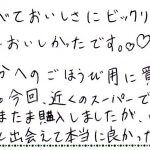 べておいしさにビックリ
おいしかったです。○♡
分へのごほうび用に買
。今回、近くのスーパーで
またま購入しましたが、
と出会えて本当に良かった